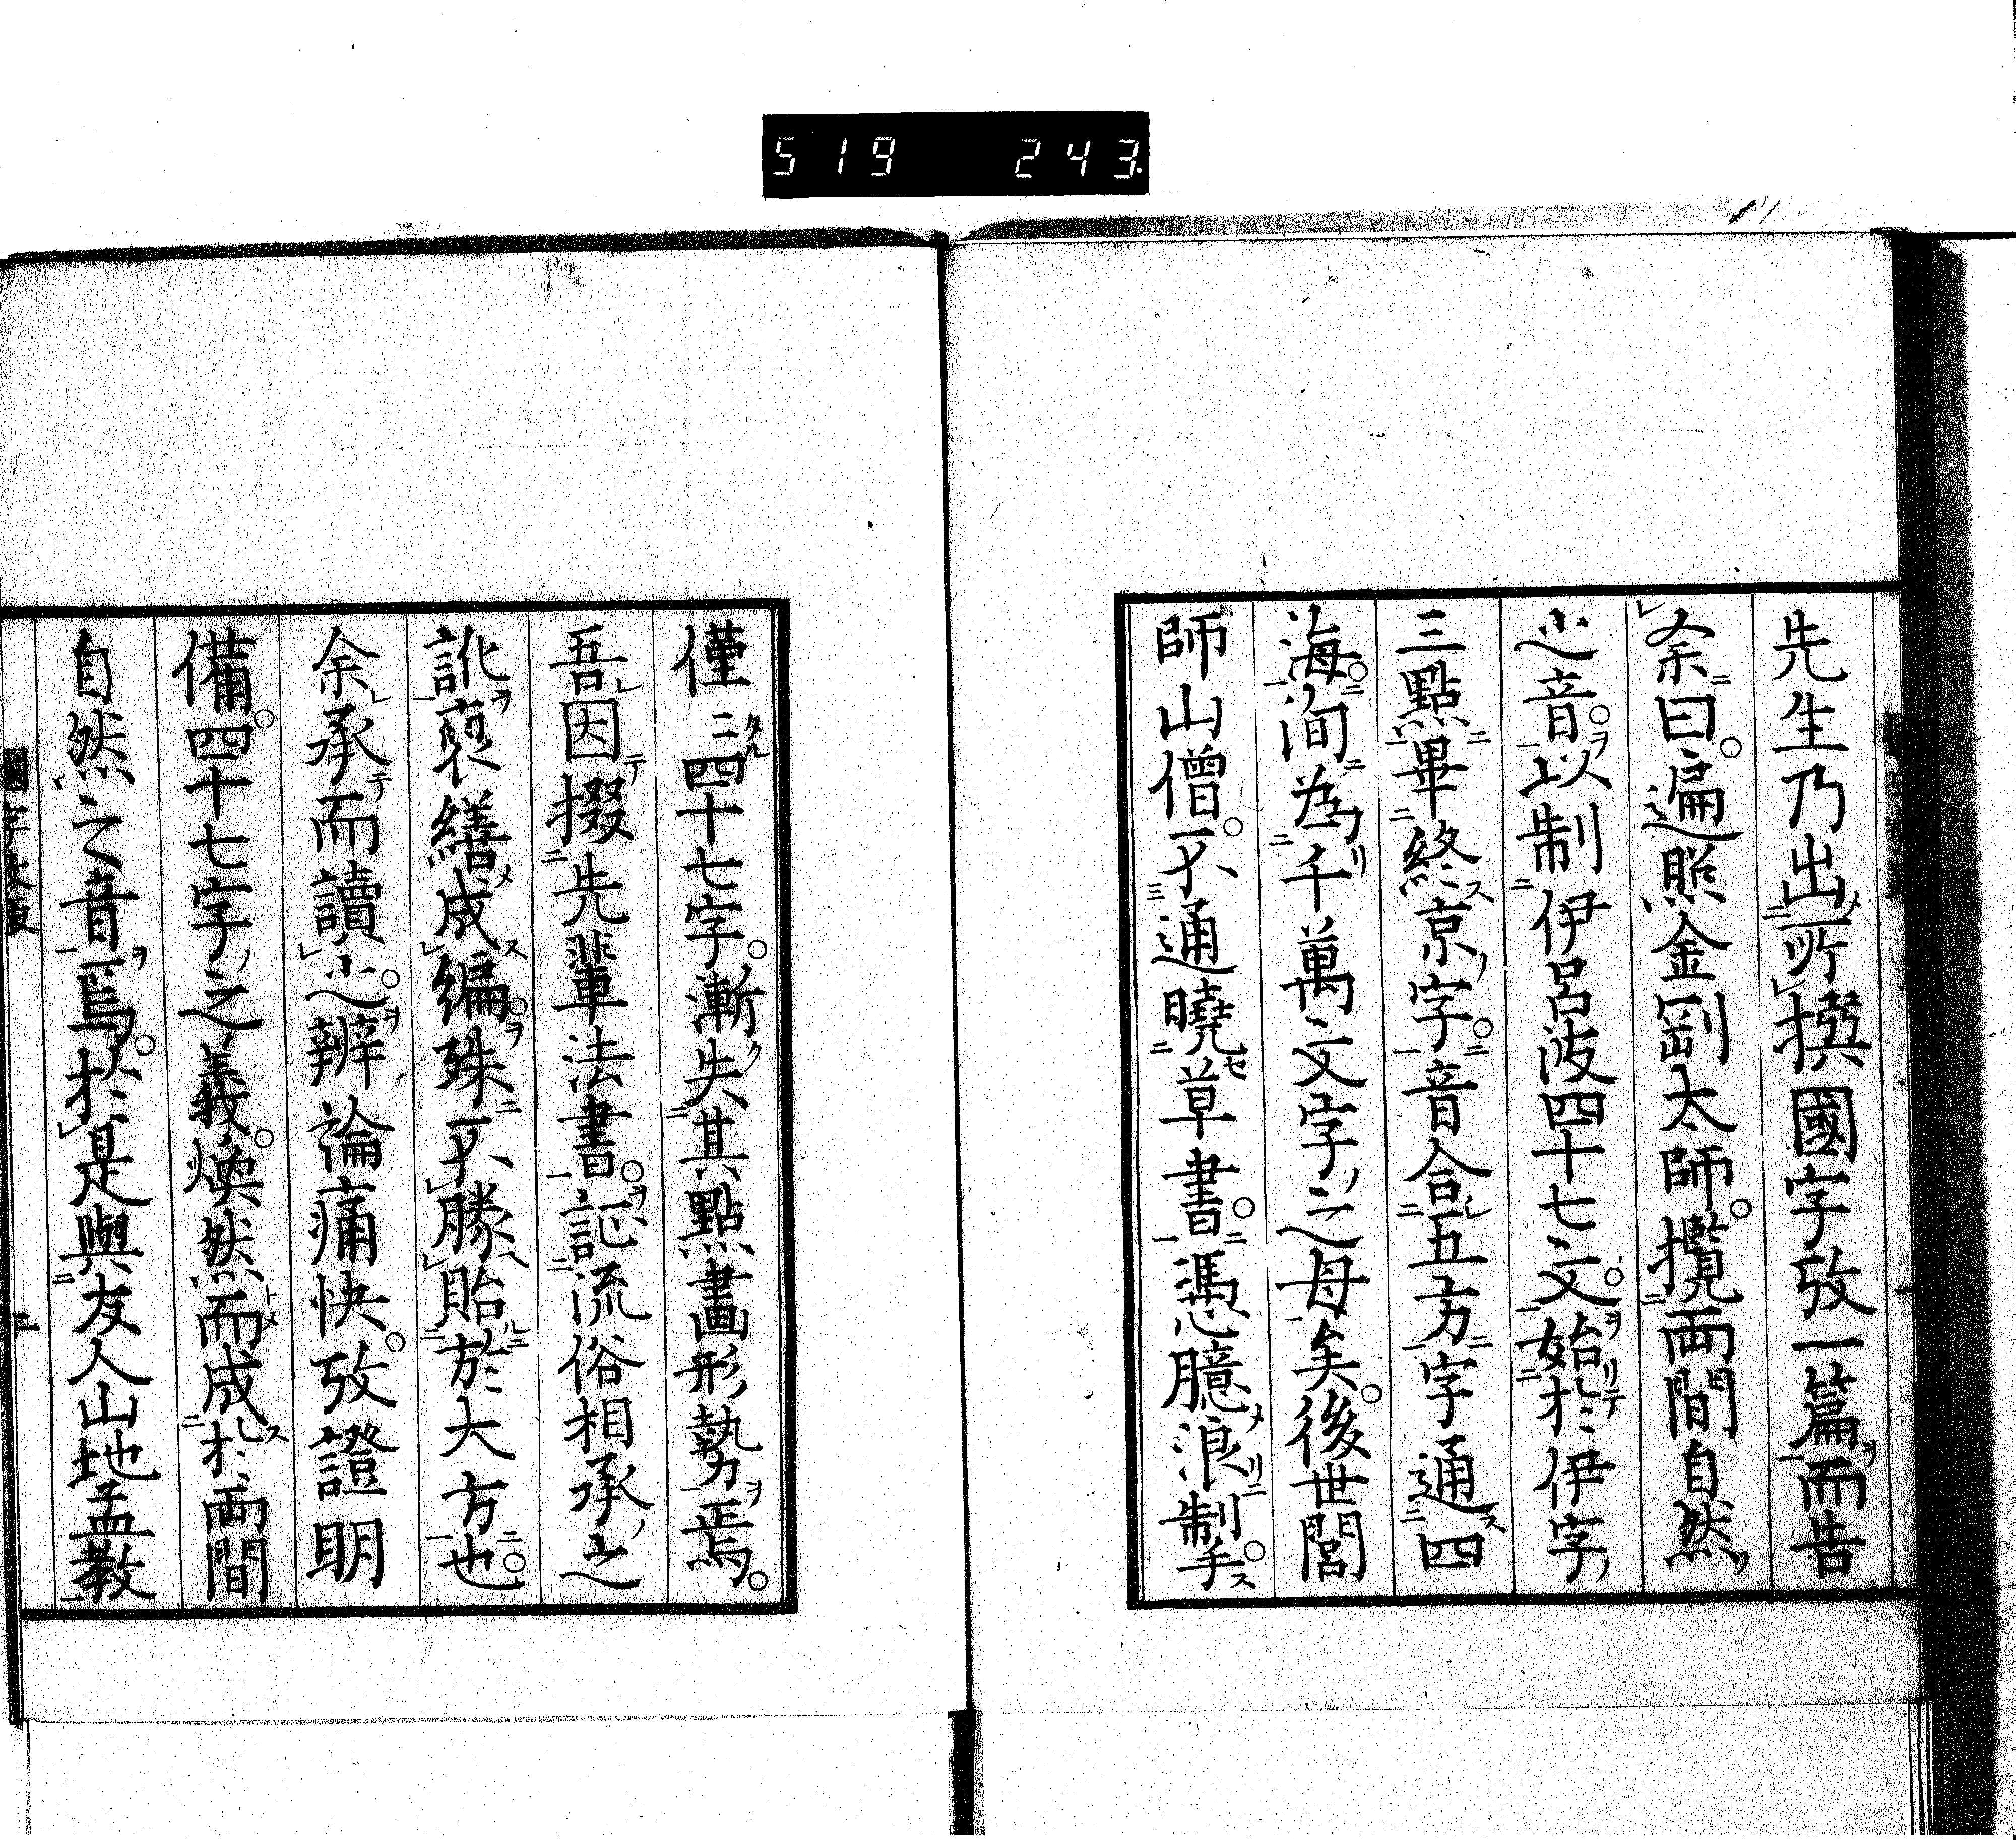 519 243.
先生乃出所撰國字攷一篇而告
余曰遍照金剛太師攬両間自然
之音以制伊呂波四十七文始於伊字
三點畢終京字音合五方字通四
海洵為千萬文字之母矣後世閭
師山僧不通曉草書馮臆浪制手
僅〻四十七字漸失其點畫形勢焉
吾因掇先輩法書記流俗相承之
訛裒繕成編殊不勝貽於大方也
余承而讀之辨論痛快攷證明
備四十七字之義煥然而成於両間
自然之音焉於是與友人山地孟教